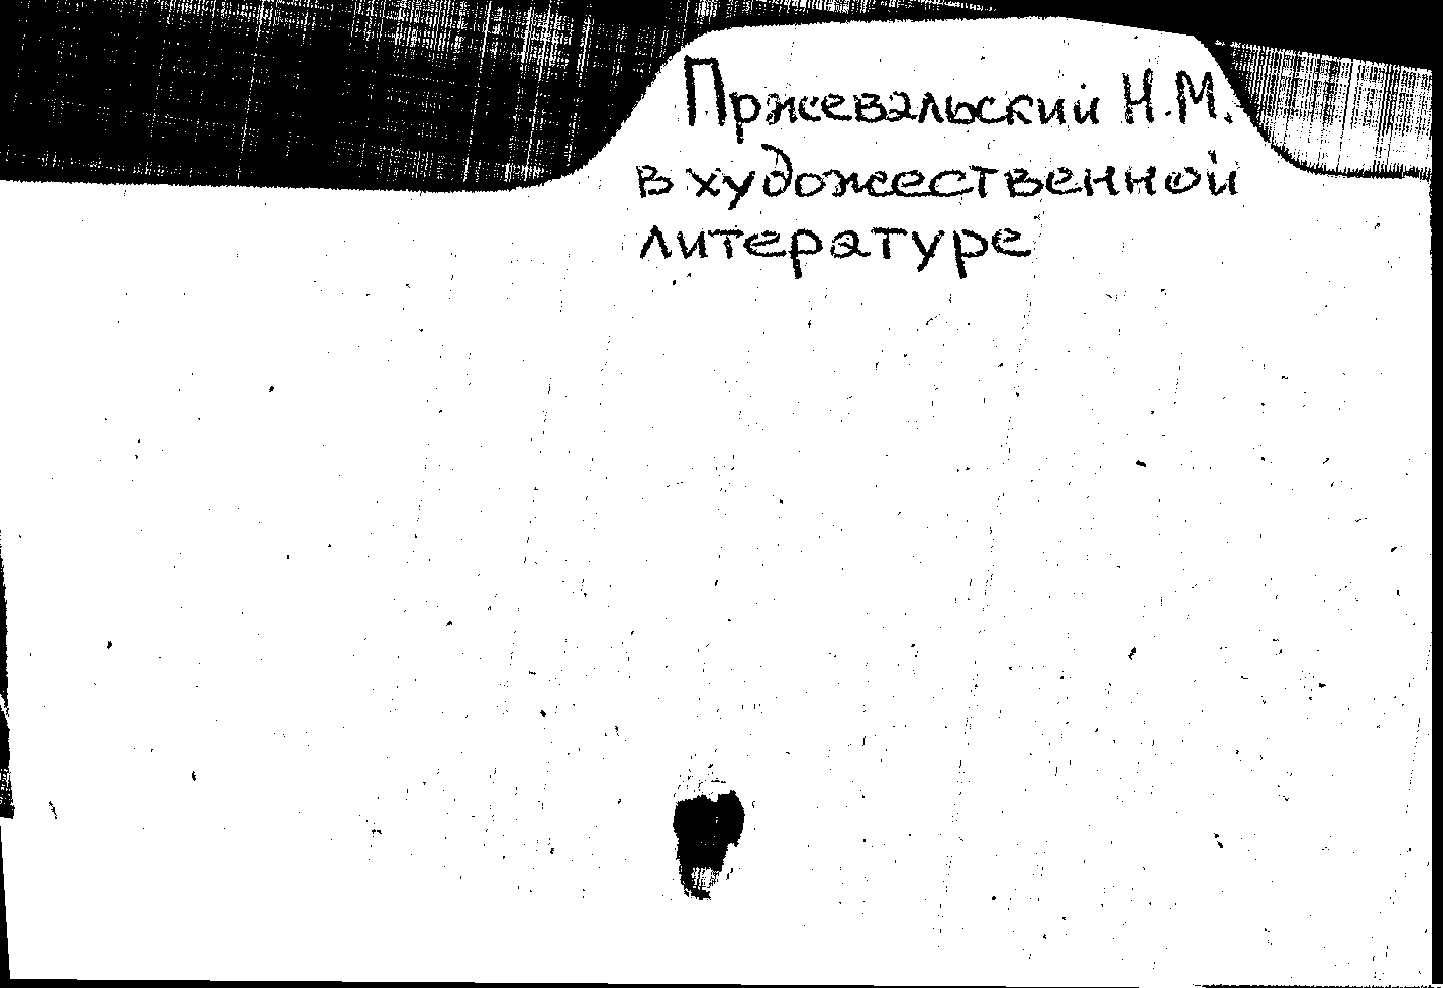 Пржевальский Н.М.
в художественной
литературе